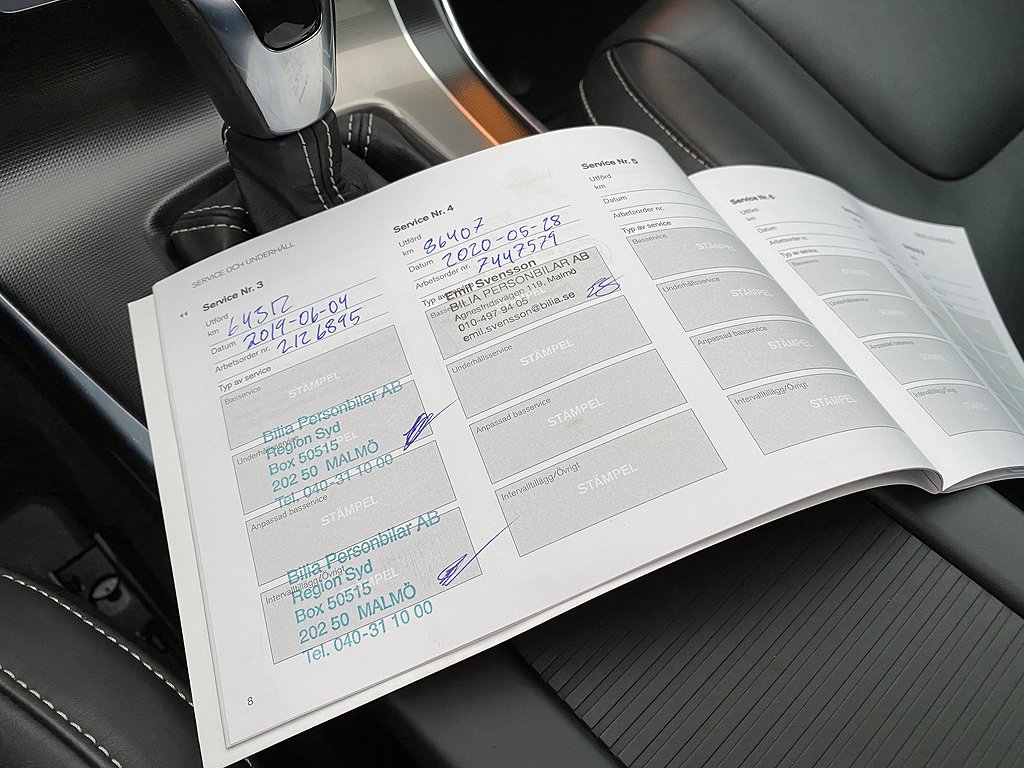 SERVICE OCH UNDERHÅLL
Service Nr. 3
Utförd
km 64512
Datum 2019-06-04
Arbetsorder nr. 2126895
Typ av service
Basservice
STÄMPEL
Bilia Personbilar AB
Region Syd
Box 50515
202 50 MALMÖ
Tel. 040-31 10 00
Anpassad basservice
STÄMPEL
Intervalltillägg/Övrigt
Bilia Personbilar AB
Region Syd
Box 50515
202 50 MALMÖ
Tel. 040-31 10 00
8
Service Nr. 4
Utförd
km 86407
Datum 2020-05-28
Arbetsorder nr. 7447579
Emil Svensson
BILIA PERSONBILAR AB
Agnesfridsvägen 119, Malmö
010-497 94 05
emil.svensson@bilia.se
Underhållsservice
STÄMPEL
Anpassad basservice
STÄMPEL
Intervalltillägg/Övrigt
STÄMPEL
Service Nr. 5
Utförd
km
Datum
Arbetsorder nr.
Typ av service
Basservice
STÄMPEL
Underhållsservice
STÄMPEL
Anpassad basservice
STÄMPEL
Intervalltillägg/Övrigt
STÄMPEL
Service Nr. 6
Utförd
km
Datum
Arbetsorder nr.
Typ av service
Basservice
STÄMPEL
Underhållsservice
STÄMPEL
Anpassad basservice
STÄMPEL
Intervalltillägg/Övrigt
STÄMPEL